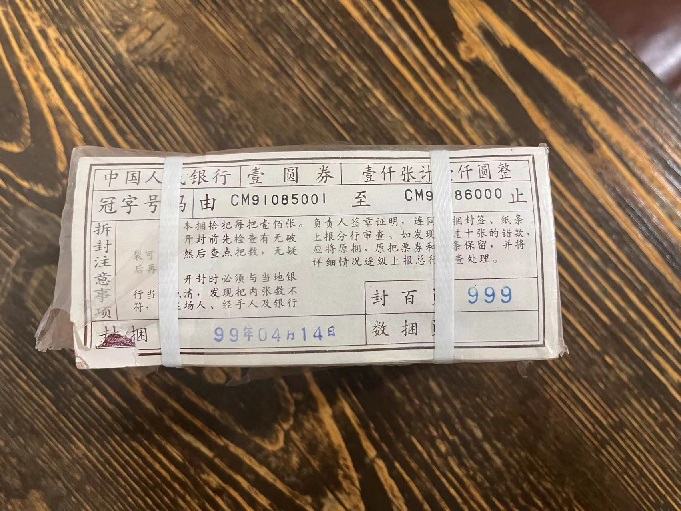 中国人 银行 壹圆券 壹仟张计 仟圆整
冠字号 由 CM91085001 至 CM9 86000 止
折封注意事项
本捆拾把每把壹佰张。
开封前先检查有无破
裂可
然后查点把数,无疑
后再
开封时必须与当地银
行当 清,发现把内张数不
符, 场人、经手人及银行
负责人签章证明,连同 捆封签、纸条
上报分行审查,如发现 过十张的错款,
应将原捆,原把票券和 条保留,并将
详细情况逐级上报总行 查处理。
封捆 99年04月14日
封百 999
数捆